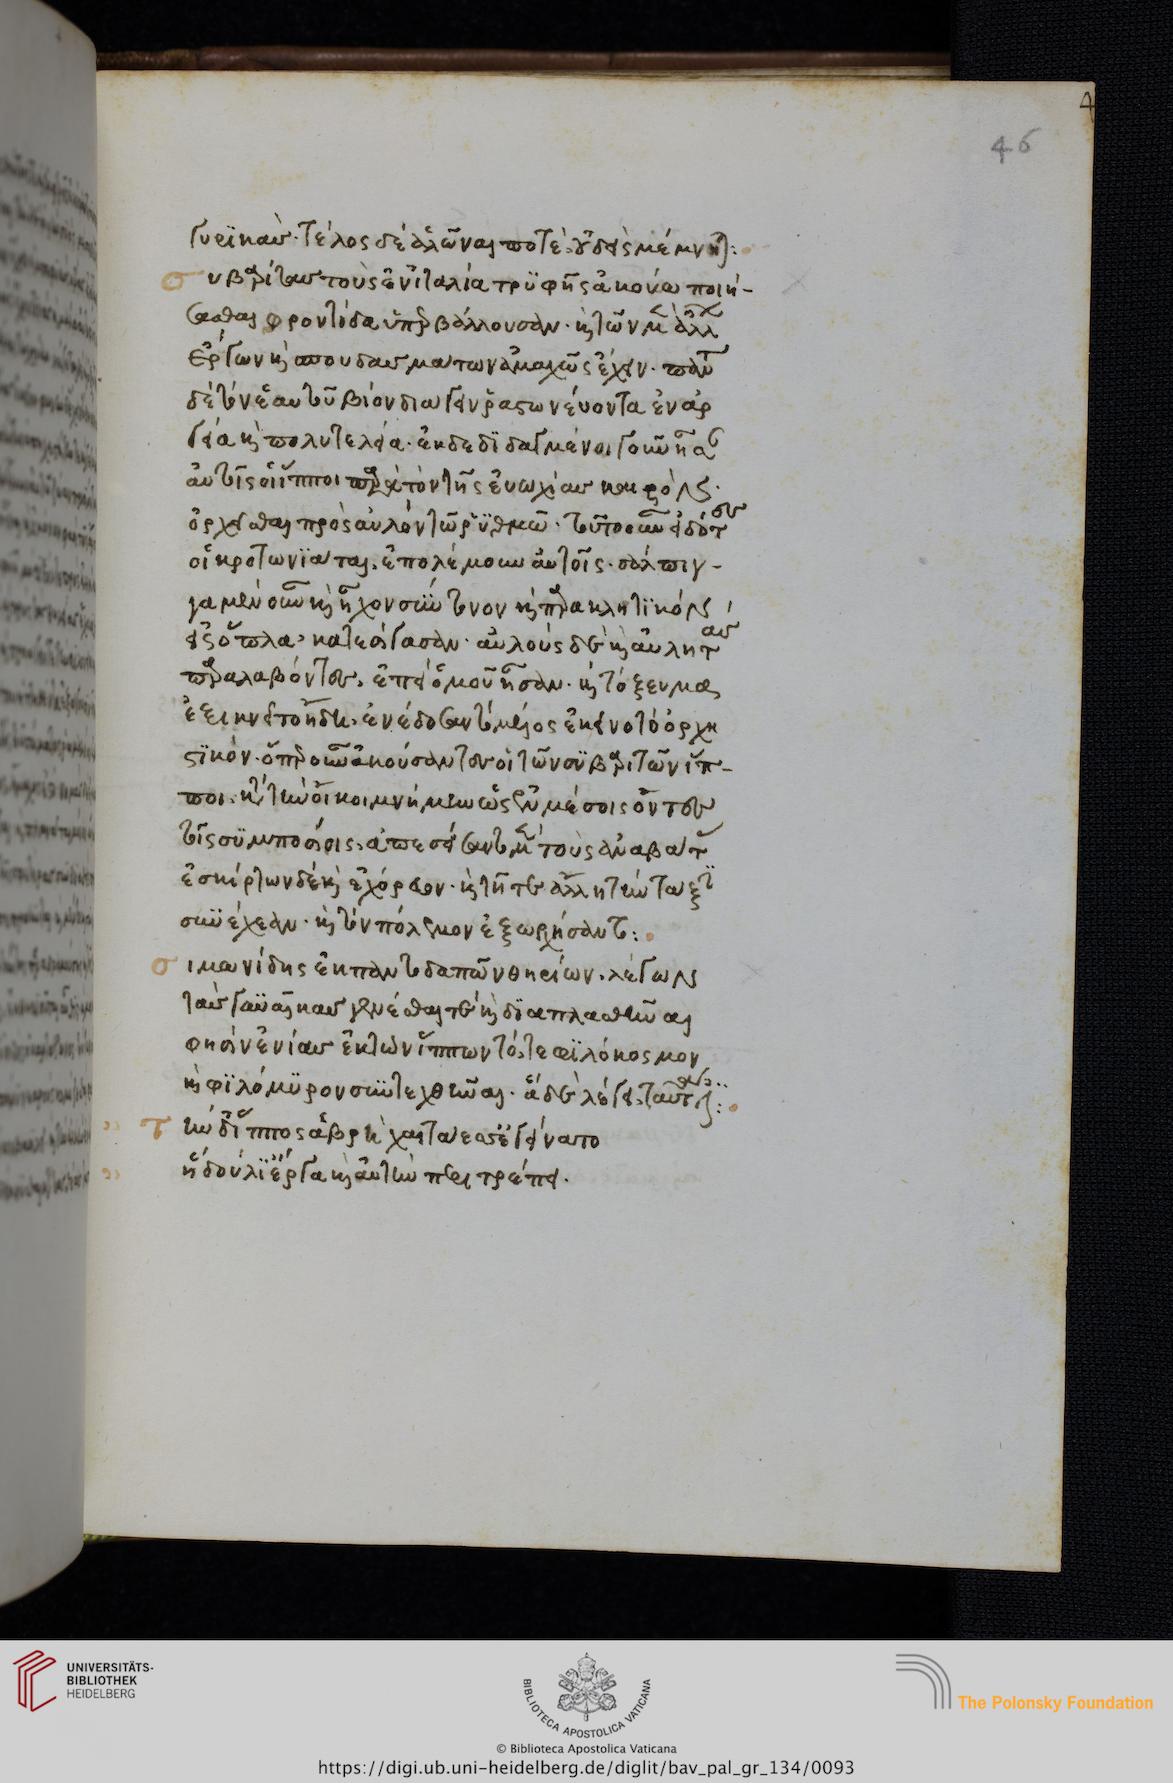 4
46
γυρϊκὰς· τέλος δὲ ἁλῶναι ποτὲ, οὐδεὶς μέμνηται:
συβαρίτας τοὺς ἐν ἰταλία τρϋφῆς ἀκούω ποιή-
σασθαι φροντίδα ὑπερβάλλουσαν· καὶ τῶν μὲν ἄλλων
ἔργων καὶ σπουδασμάτων ἀμαχῶς ἔχειν· πάντα
δὲ τὸν ἑαυτοῦ βίον διαγειν ῥαστωνεύοντα ἐν ἀρ
γεία καὶ πολυτελεία· ἐκδεδϊδαγμένοι γοῦν ἦσαν
αὐτοῖς οἱ ἵπποι παρὰ τὸν τῆς εὐωχίας καιρὸν·
ὀρχεῖσθαι πρὸς αὐλὸν τῶ ῥϋθμῶ· τοῦτο οὖν εἰδότες
οἱ κροτωνϊάται, ἐπολέμουν αὐτοῖς· σάλπιγ-
γα μὲν οὖν καὶ ἦχον σύντονον καὶ παρακλητϊκὸν
εἰς ὅπλα, κατεσίγασαν· αὐλοὺς δὲ καὶ αὐλητὰς
παραλαβόντες, ἐπεὶ ὁμοῦ ἦσαν· καὶ τόξευμα
ἐξικνεῖτο ἤδη, ἐνέδοσαν τὸ μέλος ἐκεῖνο τὸ ὀρχη
στϊκόν· ὅπερ οὖν ἀκούσαντες οἱ τῶν συβαριτῶν ἵπ-
ποι, κατὰ τὴν οἴκοι μνήμην ὡς ἐν μέσοις ὄντες
τοῖς σϋμποσίοις, ἀπεσείσαντο μὲν τοὺς ἀναβάτας
ἐσκίρτων δὲ καὶ ἐχόρευον· καὶ ταύτῃ τε ἄλλη τὴν τάξιν
συνέχεαν· καὶ τὸν πόλεμον ἐξωρχήσαντο:
σιμωνίδης ἐκ παντοδαπῶν θηρίων, λέγων
τὰς γυναῖκας γενέσθαι τε καὶ δϊαπλασθῆναι
φησὶν ἐνίαις ἐκ τῶν ἵππων τό, τε φϊλόκοσμον
καὶ φϊλόμϋρον συντεχθῆναι· ἃ δὲ λέγει, ταῦτά ἐστιν:
τὴν δ' ἵππος ἁβρὴ χαιτάεσσ' ἐγείνατο
ἣ δούλϊ' ἔργα καὶ αὐτὴν περιτρέπει·
UNIVERSITÄTS-
BIBLIOTHEK
HEIDELBERG
BIBLIOTECA APOSTOLICA VATICANA
The Polonsky Foundation
© Biblioteca Apostolica Vaticana
https://digi.ub.uni-heidelberg.de/diglit/bav_pal_gr_134/0093